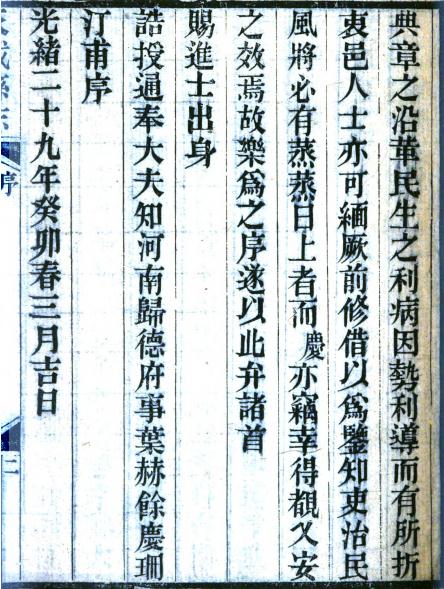 典章之沿革民生之利病因勢利導而有所折
衷邑人士亦可緬厥前修借以爲鑒知吏治民
風將必有蒸蒸日上者而慶亦竊幸得覩乂安
之效焉故樂爲之序遂以此弁諸首
賜進士出身
誥授通奉大夫知河南歸德府事葉赫餘慶珊
汀甫序
光緒二十九年癸卯春三月吉日
序